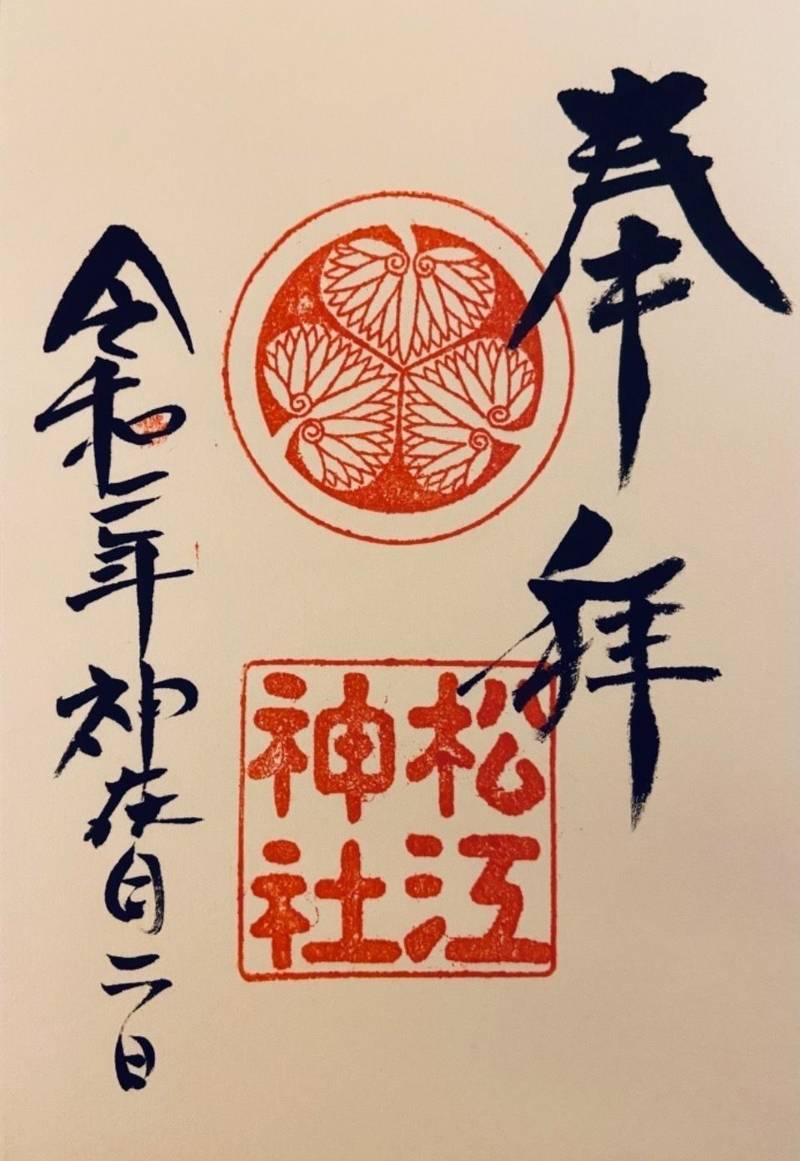 奉拝
松江
神社
令和二年神在月二日